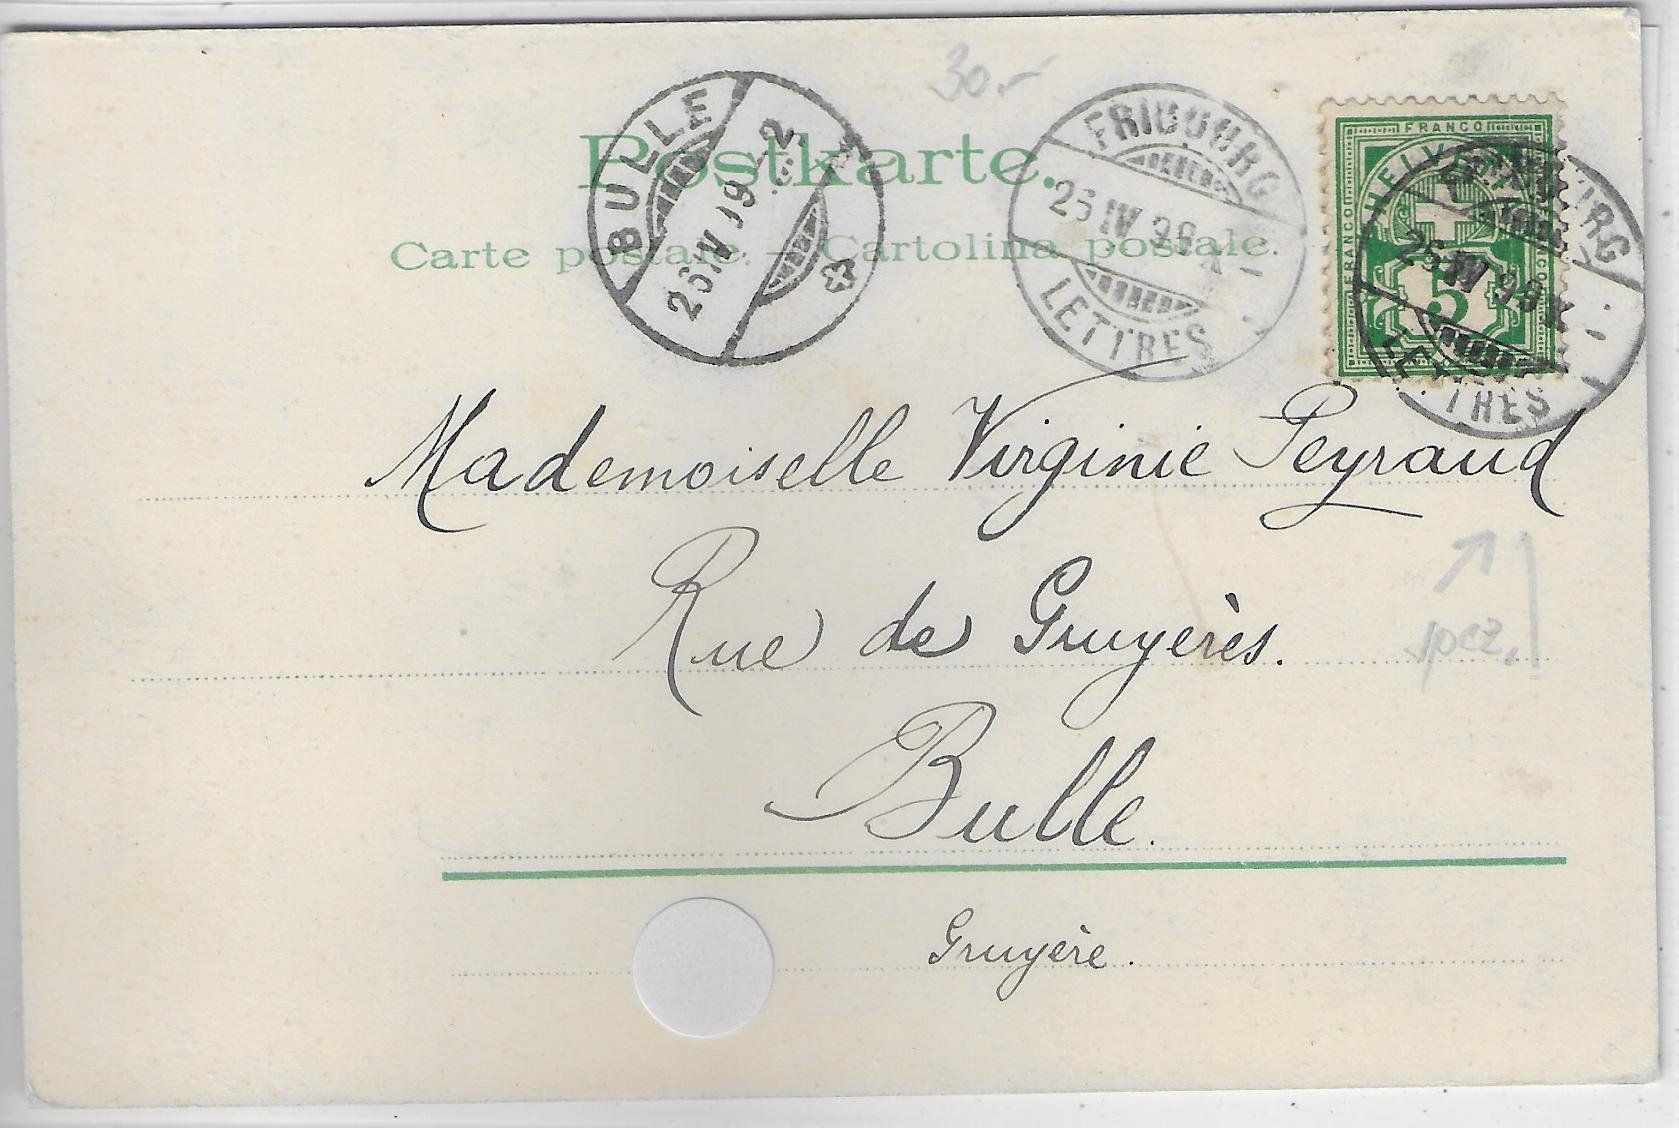 30.-
Postkarte.
Carte postale. – Cartolina postale.
BULLE
26 IV 99 - 2
FRIBOURG
26 IV 99
LETTRES
FRANCO
HELVETIA
FRANCO
FRANCO
5
FRIBOURG
26 IV 99
LETTRES
Mademoiselle Virginie Peyraud
Rue de Gruyères.
Bulle.
Gruyère.